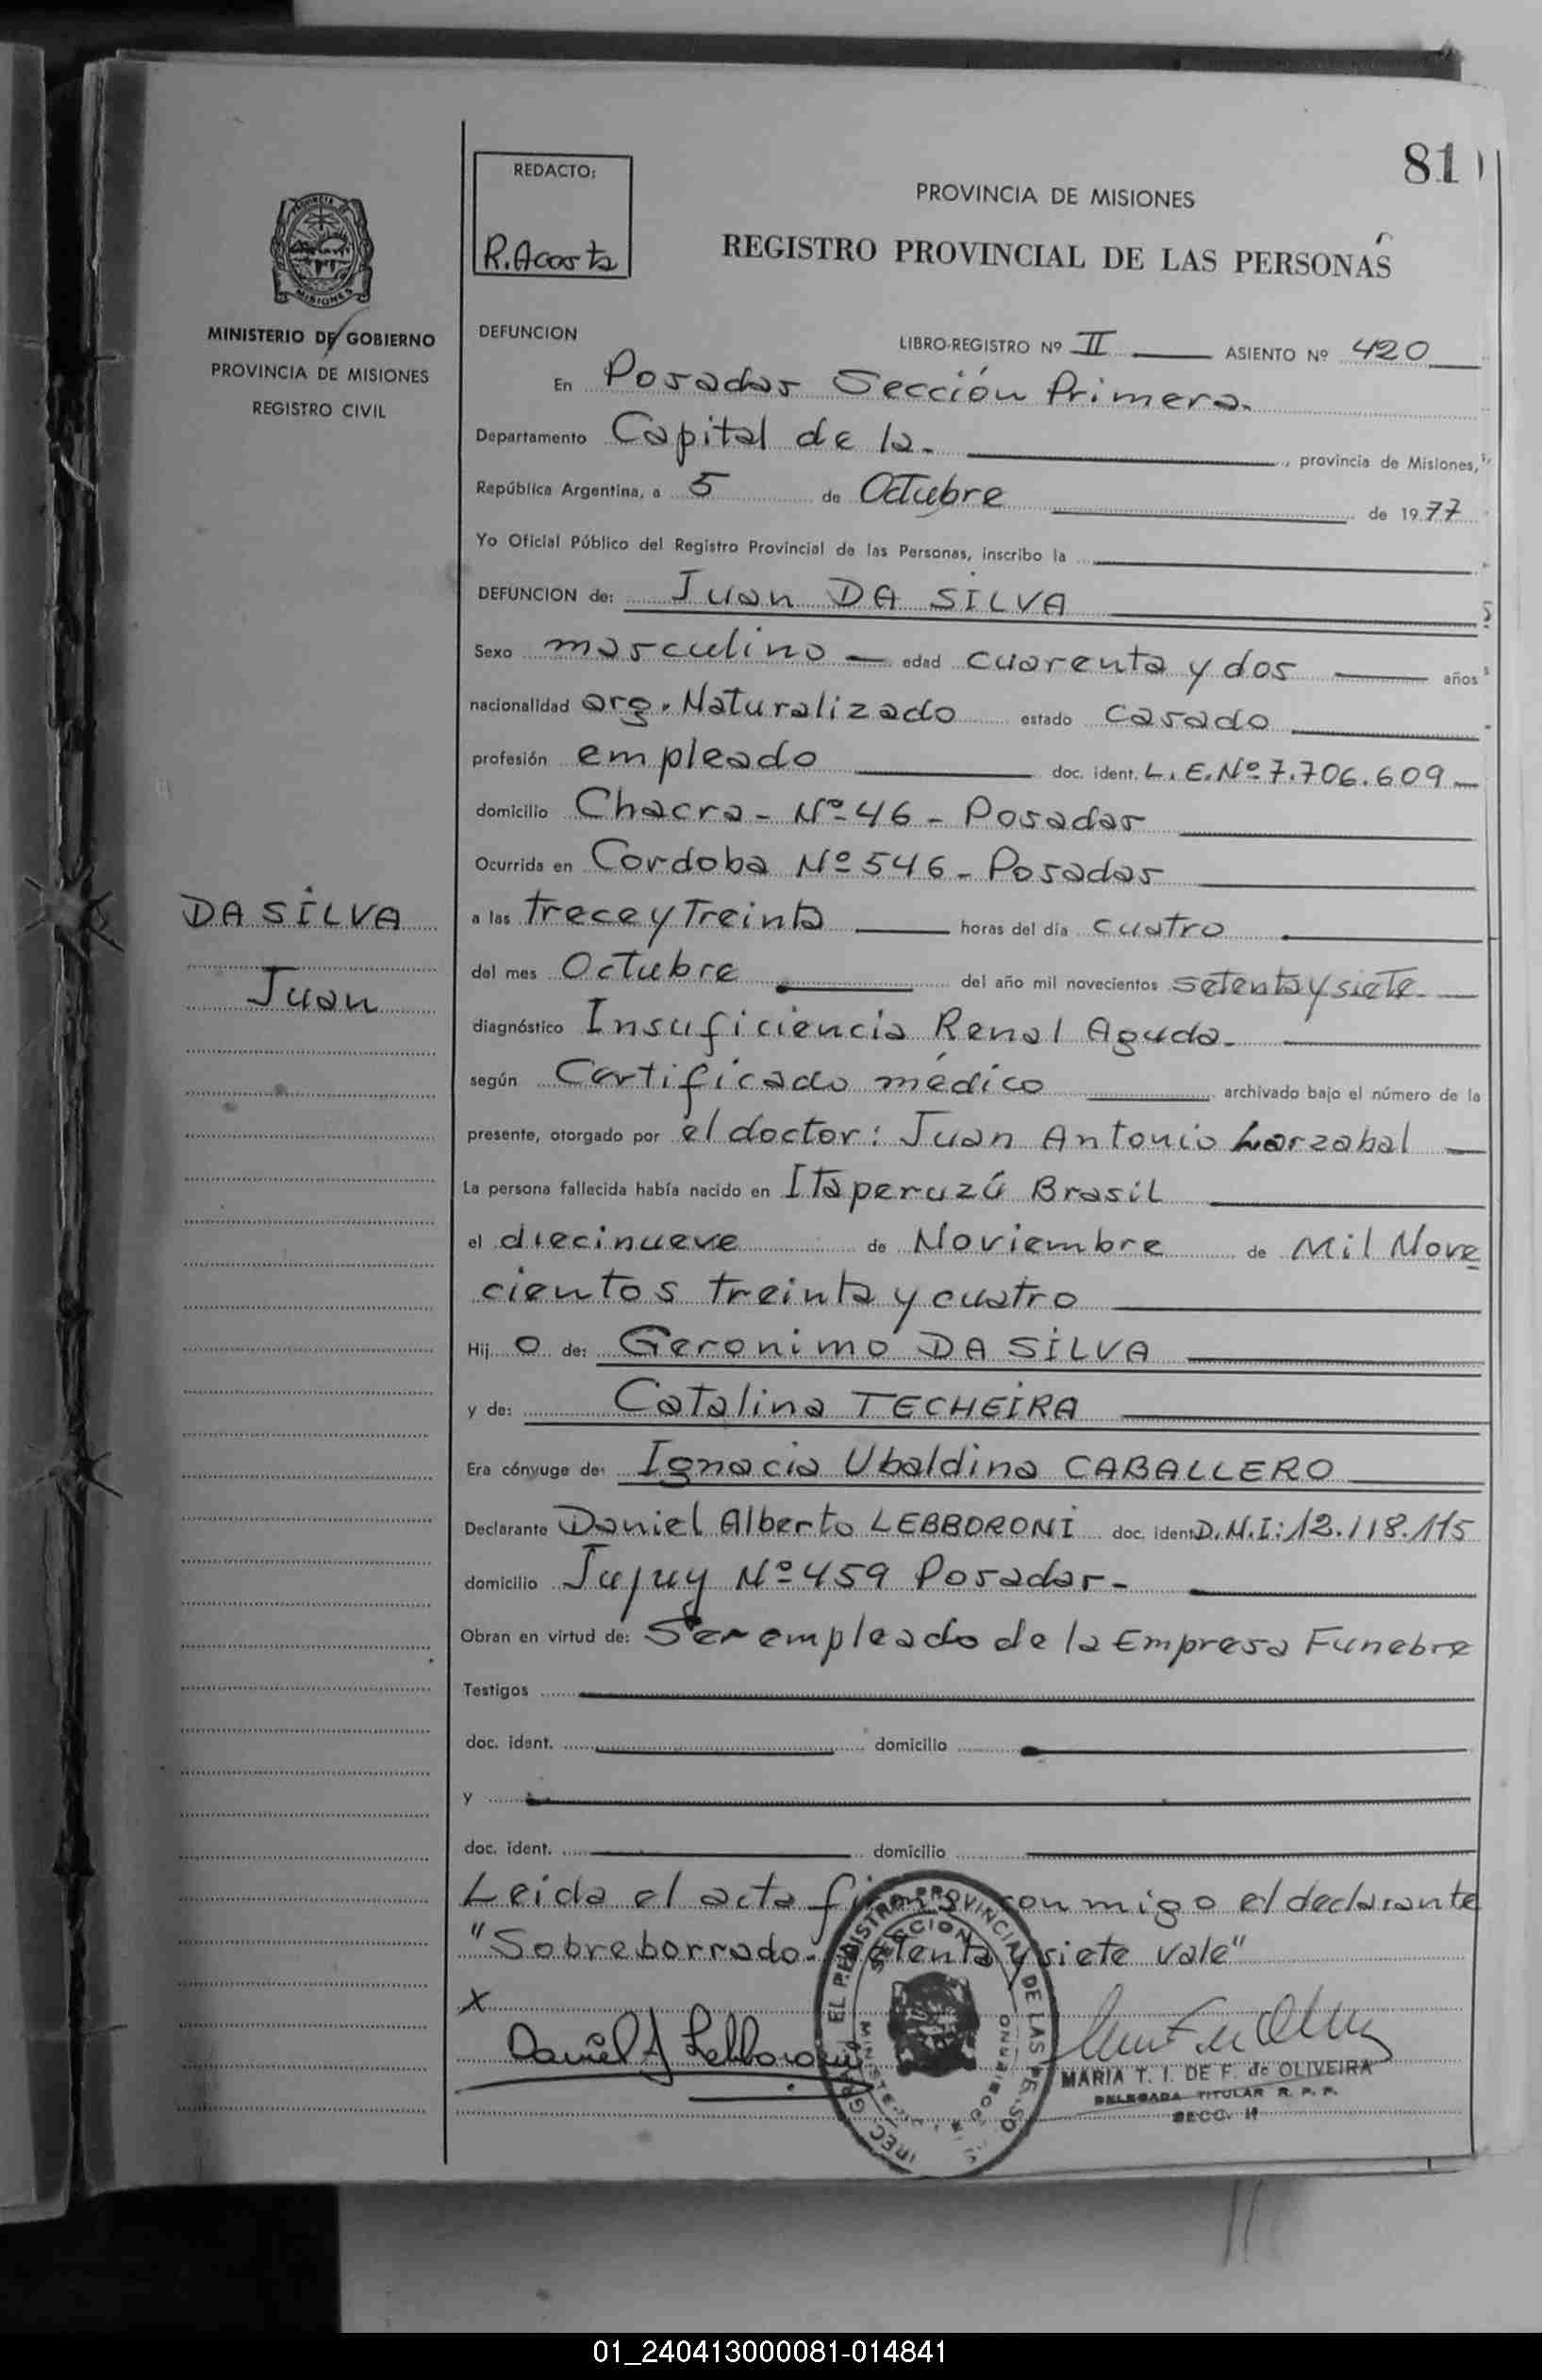 81
REDACTO:
R. Acosta
PROVINCIA DE MISIONES
REGISTRO PROVINCIAL DE LAS PERSONAS
MINISTERIO DE GOBIERNO
PROVINCIA DE MISIONES
REGISTRO CIVIL
DEFUNCION LIBRO-REGISTRO Nº II ASIENTO Nº 420
En Posadas Sección Primera.
Departamento Capital de la. , provincia de Misiones,
República Argentina, a 5 de Octubre de 1977
Yo Oficial Público del Registro Provincial de las Personas, inscribo la
DEFUNCION de: Juan DA SILVA
Sexo masculino edad cuarenta y dos años
nacionalidad arg. Naturalizado estado casado
profesión empleado doc. ident. L.E.Nº 7.706.609
domicilio Chacra - Nº 46 - Posadas
Ocurrida en Cordoba Nº 546 - Posadas
DA SILVA
Juan
a las trece y Treinta horas del día cuatro
del mes Octubre del año mil novecientos setenta y siete
diagnóstico Insuficiencia Renal Aguda.
según Certificado médico archivado bajo el número de la
presente, otorgado por el doctor: Juan Antonio Larzabal
La persona fallecida había nacido en Itaperuzú Brasil
el diecinueve de Noviembre de Mil Nove
cientos treinta y cuatro
Hij o de: Geronimo DA SILVA
y de: Catalina TECHEIRA
Era cónyuge de: Ignacia Ubaldina CABALLERO
Declarante Daniel Alberto LEBBORONI doc. ident. D.N.I: 12.118.115
domicilio Jujuy Nº 459 Posadas -
Obran en virtud de: Ser empleado de la Empresa Funebre
Testigos
doc. ident. domicilio
y
doc. ident. domicilio
Leida el acta firma conmigo el declarante
"Sobreborrado. setenta y siete vale"
x
Daniel A Lebboroni
MARIA T. I. DE F. de OLIVEIRA
DELEGADA TITULAR R. P. P.
SECC. 1ª
01_240413000081-014841